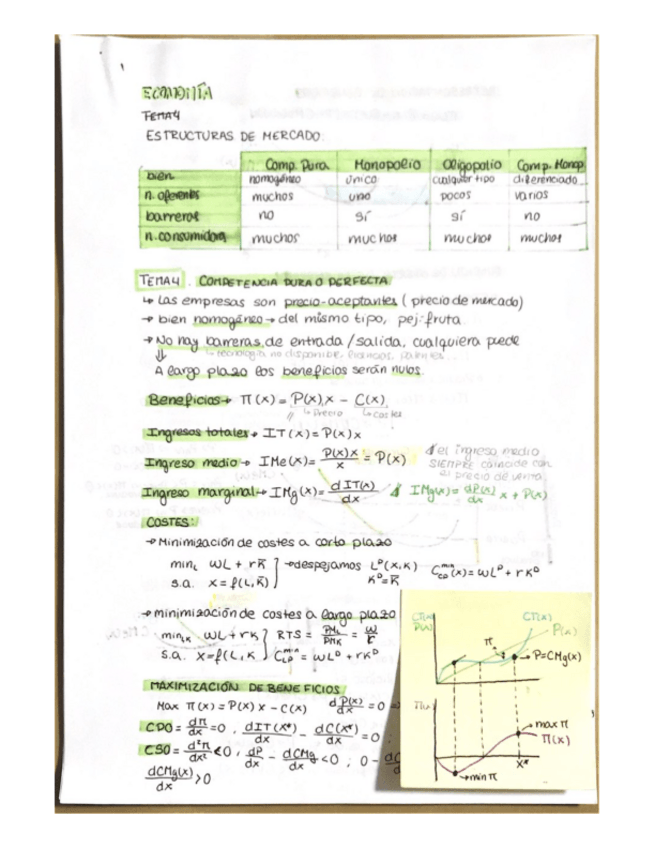 ECONOMÍA
TEMA 4
ESTRUCTURAS DE MERCADO:
Comp. Pura Monopolio Oligopolio Comp. Monop
bien homogéneo único cualquier tipo diferenciado
n. oferentes muchos uno pocos varios
barreras no sí sí no
n. consumidores muchos muchos muchos muchos
TEMA 4. COMPETENCIA PURA O PERFECTA
↳ Las empresas son precio-aceptantes (precio de mercado)
→ bien homogéneo → del mismo tipo, pej: fruta
→ No hay barreras de entrada/salida, cualquiera puede
↳ tecnología no disponible, licencias, patentes...
⇓
A largo plazo los beneficios serán nulos.
Beneficios → Π(x) = P(x)x − C(x)
↳ Precio ↳ costes
Ingresos totales → IT(x) = P(x)x
Ingreso medio → IMe(x) = P(x)x / x = P(x)
el ingreso medio
SIEMPRE coincide con
el precio de venta
Ingreso marginal → IMg(x) = dIT(x)/dx
IMg(x) = dP(x)/dx x + P(x)
COSTES:
→ Minimización de costes a corto plazo
min_L wL + rK̅ → despejamos L^D(x,K) C_CP^min(x) = wL^D + rK^D
s.a. x = f(L,K̅) K^D = K̅
→ minimización de costes a largo plazo
min_LK wL + rK RTS = PM_L/PM_K = w/r
s.a. x = f(L,K C_LP^min = wL^D + rK^D
MAXIMIZACIÓN DE BENEFICIOS
Max Π(x) = P(x)x − C(x) dP(x)/dx = 0
CPO = dΠ/dx = 0, dIT(x*)/dx − dC(x*)/dx = 0;
CSO = d²Π/dx² < 0; dP/dx − dCMg/dx < 0; 0 − dC
dCMg(x)/dx > 0
CT(x)
P(x)
CT(x)
P(x)
Π
P=CMg(x)
Π(x)
max Π
Π(x)
x*
→ min Π